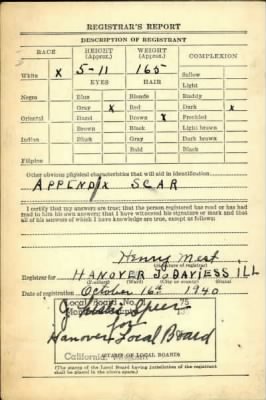 REGISTRAR'S REPORT
DESCRIPTION OF REGISTRANT
RACE HEIGHT (Approx.) WEIGHT (Approx.) COMPLEXION
White X 5-11 165 Sallow
EYES HAIR Light
Negro Blue Blonde Ruddy
Gray X Red Dark X
Oriental Hazel Brown X Freckled
Brown Black Light brown
Indian Black Gray Dark brown
Bald Black
Filipino
Other obvious physical characteristics that will aid in identification
APPENDIX SCAR
I certify that my answers are true; that the person registered has read or has had
read to him his own answers; that I have witnessed his signature or mark and that
all of his answers of which I have knowledge are true, except as follows:
Henry
(Signature of registrar)
Registrar for HANOVER JO DAVIESS ILL
(Precinct) (Ward) (City or county) (State)
Date of registration October 16th 1940
Local Board No. 75
for
Hanover Local Board
California
(STAMP OF LOCAL BOARD)
(The stamp of the Local Board having jurisdiction of the registrant
shall be placed in the above space.)